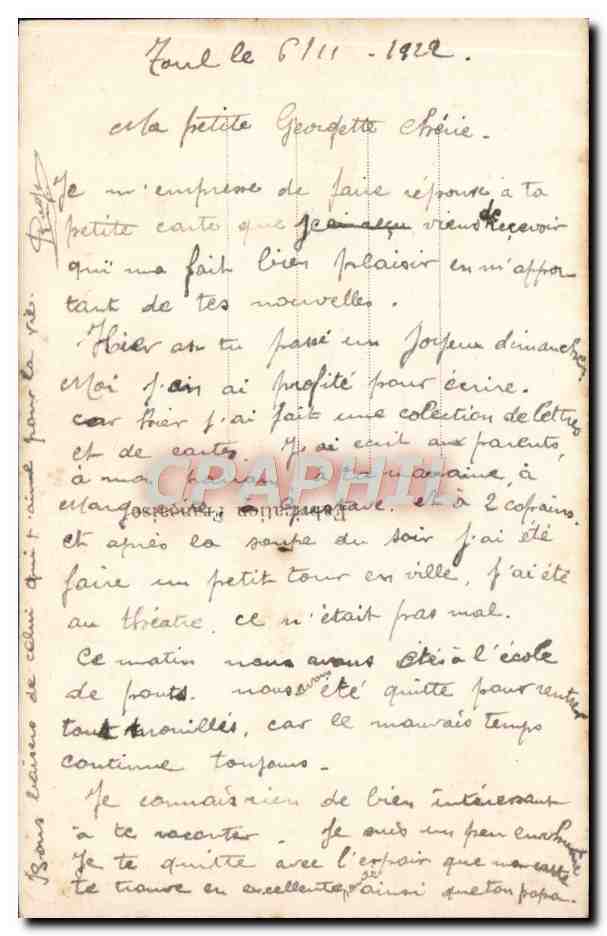 Toul le 6/11 - 1922.
Ma petite Georgette Chérie.
Je m'empresse de faire réponse à ta
petite carte que je viens de reçevoir
qui ma fait bien plaisir en m'appor
tant de tes nouvelles.
Hier as tu passé un joyeux dimanche
Moi j'en ai profité pour écrire.
car hier j'ai fait une colection de lettres
et de cartes. J'ai ecrit aux parents,
à mon parrain à ta marraine, à
Marguerite, Gustave. et à 2 copains.
Et après la soupe du soir j'ai été
faire un petit tour en ville, j'ai été
au théatre, ce n'était pas mal.
Ce matin nous avons étés à l'école
de ponts. nous avons été quitte pour rentrer
tout mouillés, car le mauvais temps
continue toujours.
Je connais rien de bien intéressant
à te raconter. Je suis un peu enrhumé
Je te quitte avec l'espoir que ma carte
te trouve en excellente ainsi que ton papa.
Bons baisers de celui qui t'aime pour la vie.
Fabrication Française
CPAPHIL